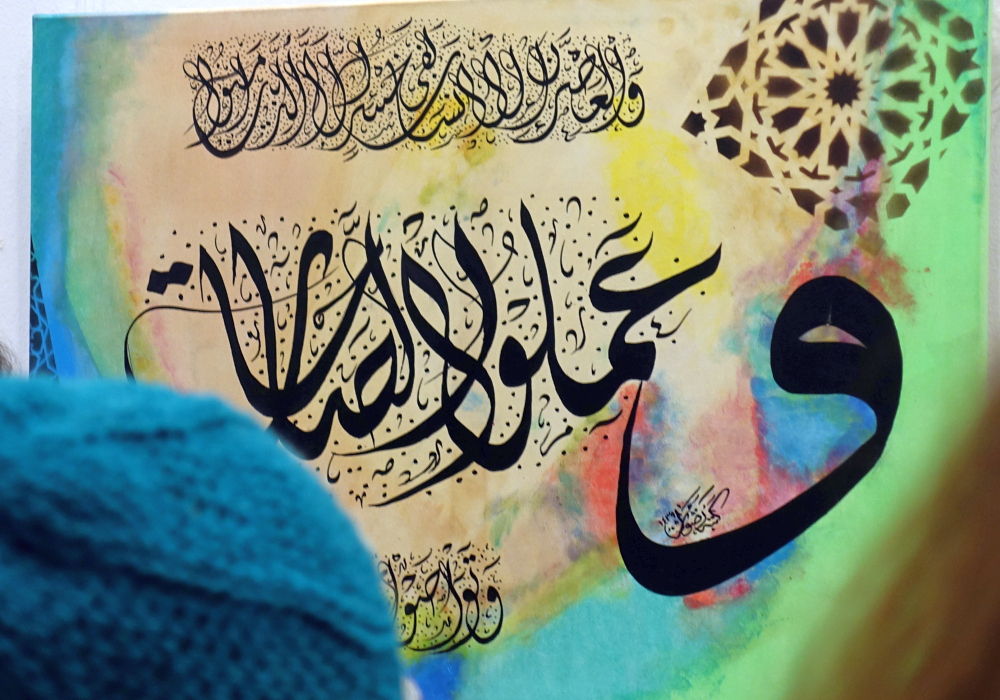 وَالْعَصْرِ إِنَّ الْإِنسَانَ لَفِي خُسْرٍ إِلَّا الَّذِينَ آمَنُوا
وعملوا الصالحات
وَتَوَاصَوْا